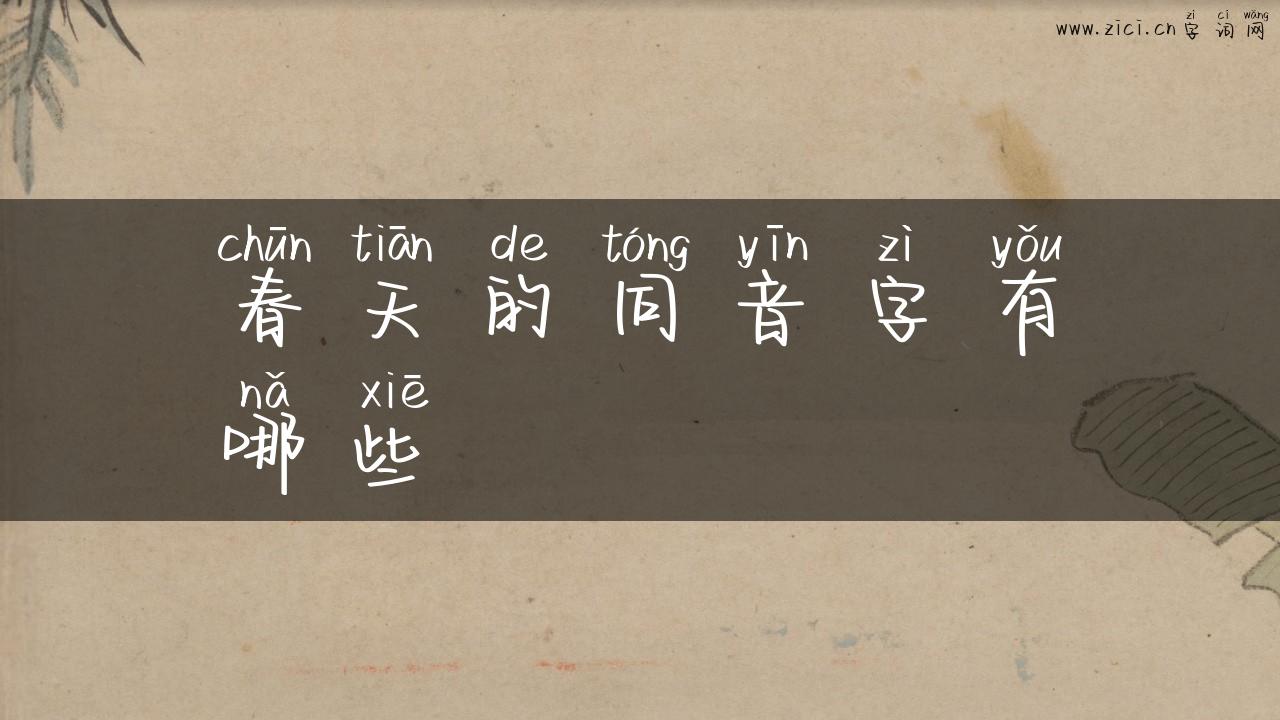 zì cí wǎng
www.zici.cn 字 词 网
chūn tiān de tóng yīn zì yǒu
春 天 的 同 音 字 有
nǎ xiē
哪 些